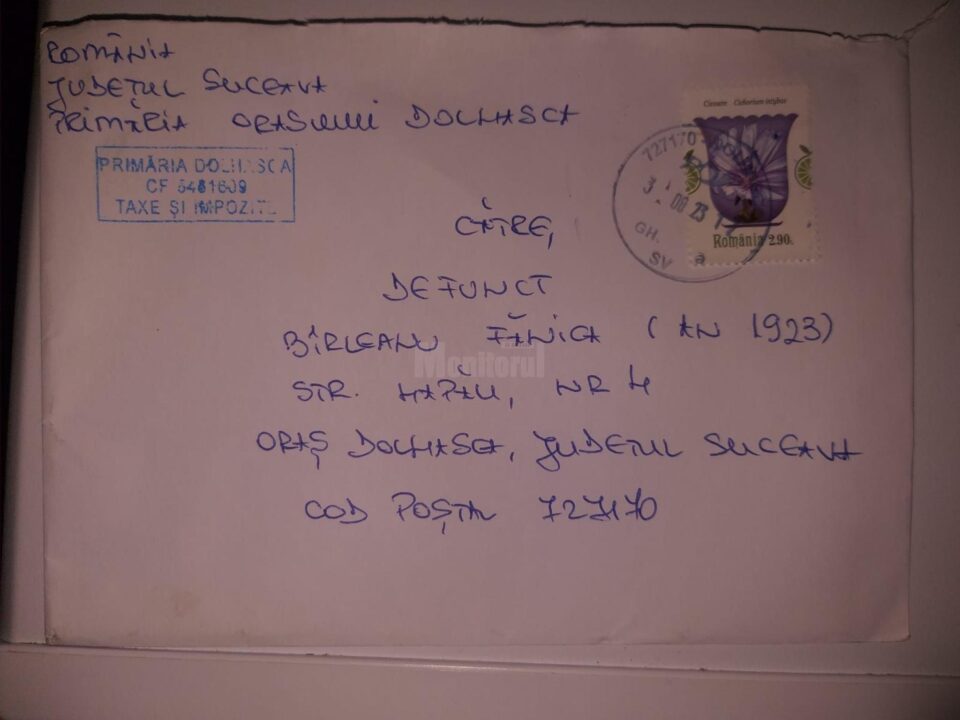 ROMÂNIA
JUDEȚUL SUCEAVA
PRIMĂRIA ORASULUI DOLHASCA
PRIMĂRIA DOLHASCA
CF 5481609
TAXE ȘI IMPOZITE
Cicoare Cichorium intybus
727170
3 08 23
GH.
SV
a
România 2.90
CĂTRE,
DEFUNCT
BÎRLEANU FĂNICA (AN 1923)
Monitorul
STR. HAPĂU, NR 4
ORAȘ DOLHASCA, JUDETUL SUCEAVA
COD POȘTAL 727170